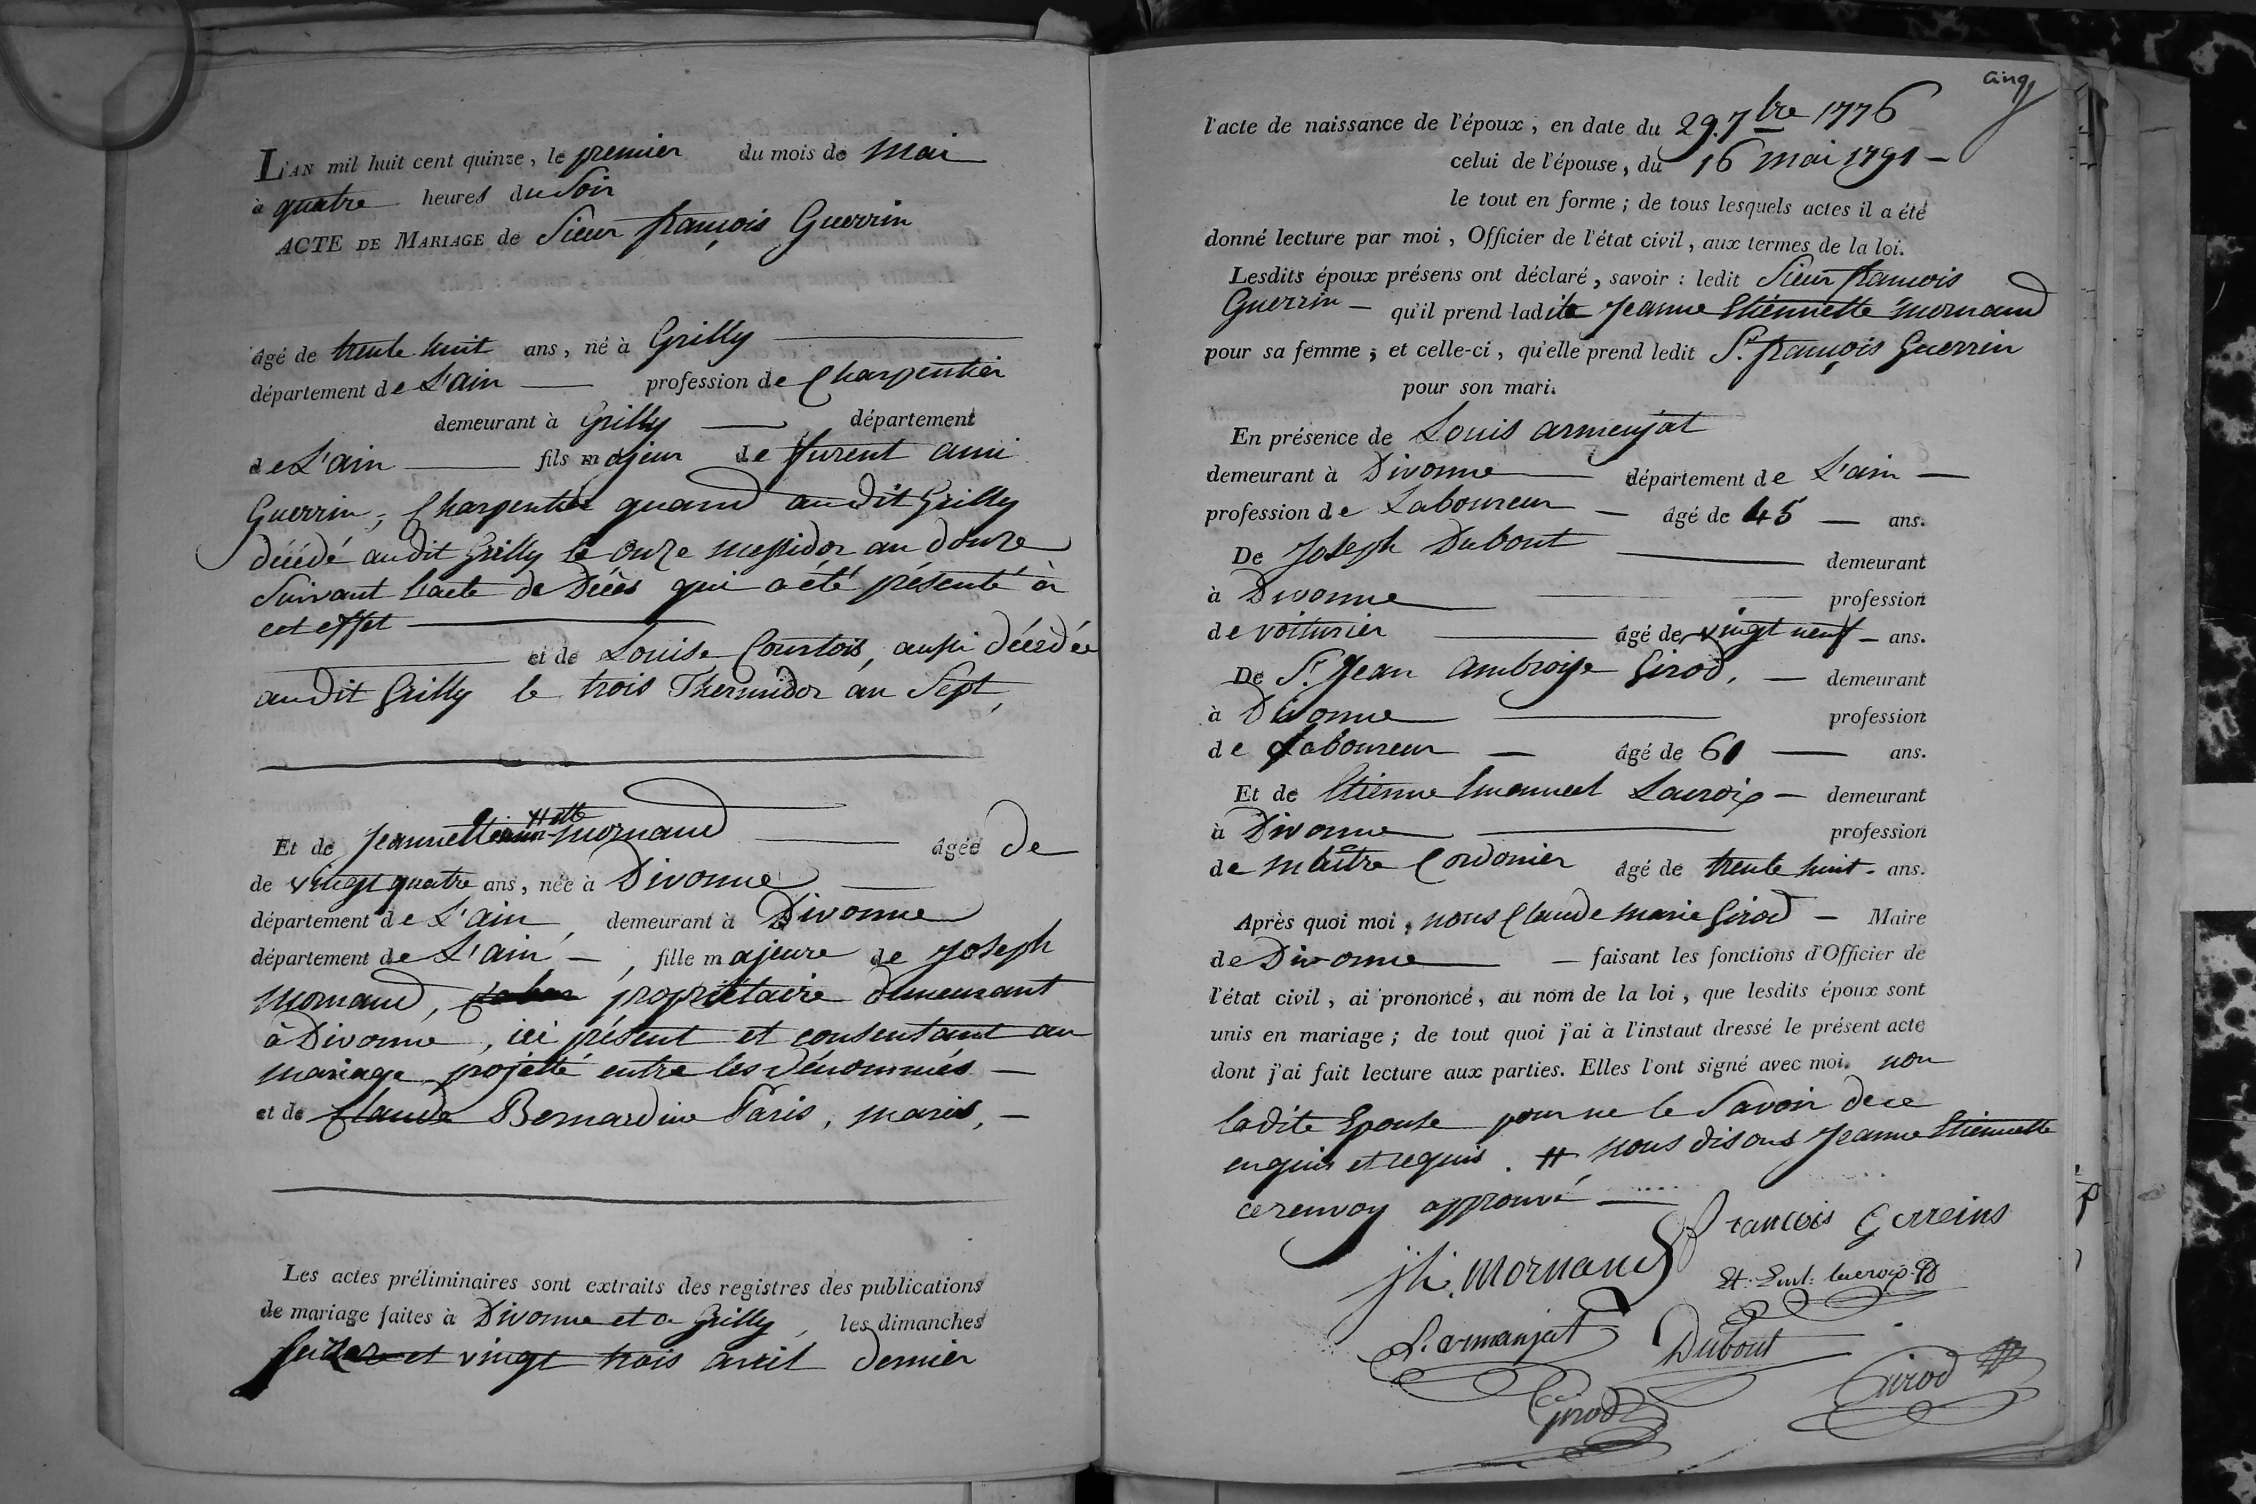 L'AN mil huit cent quinze, le premier du mois de mai
à quatre heures du Soir
ACTE DE MARIAGE de Sieur françois Guerrin
âgé de trente huit ans, né à Grilly
département de L'ain profession de Charpentier
demeurant à Grilly département
de L'ain fils majeur de furent ami
Guerrin, Charpentier quand audit Grilly
décédé audit Grilly le onze messidor an douze
Suivant l'acte de Décès qui a été présenté à
cet effet
et de Louise Courtois, aussi décédée
audit Grilly le trois Thermidor an Sept,
#ette
Et de Jeannette mornand âgée de
de vingt quatre ans, née à Divonne
département de L'ain, demeurant à Divonne
département de L'ain, fille majeure de Joseph
mornand, propriétaire demeurant
à Divonne, ici présent et consentant au
mariage projetté entre les dénommés
et de Claude Bernardine Paris, mariés,
Les actes préliminaires sont extraits des registres des publications
de mariage faites à Divonne et a Grilly, les dimanches
Seize et vingt trois avril dernier
Cinq
l'acte de naissance de l'époux, en date du 29. 7bre 1776
celui de l'épouse, du 16 mai 1791 –
le tout en forme; de tous lesquels actes il a été
donné lecture par moi, Officier de l'état civil, aux termes de la loi.
Lesdits époux présens ont déclaré, savoir : ledit Sieur francois
Guerrin – qu'il prend ladite Jeanne Etiennette mornand
pour sa femme; et celle-ci, qu'elle prend ledit Sr. françois Guerrin
pour son mari.
En présence de Louis armenjat
demeurant à Divonne département de L'ain –
profession de Laboureur – âgé de 45 – ans.
De Joseph Dubout demeurant
à Divonne profession
de voiturier âgé de vingt neuf – ans.
De Sr. Jean Ambroise Girod, – demeurant
à Divonne profession
de Laboureur – âgé de 61 – ans.
Et de Etienne Emanuel Lacroix – demeurant
à Divonne profession
de maître Cordonier âgé de trente huit - ans.
Après quoi moi, nous Claude marie Girod – Maire
de Divonne – faisant les fonctions d'Officier de
l'état civil, ai prononcé, au nom de la loi, que lesdits époux sont
unis en mariage; de tout quoi j'ai à l'instant dressé le présent acte
dont j'ai fait lecture aux parties. Elles l'ont signé avec moi. non
ladite Epouse pour ne le Savoir de ce
enquis et requis. # nous disons Jeanne Etiennette
ce renvoy approuvé
francois Gerreins
jh. mornand Et. Eml. lacroix
L. armanjat Dubout
Girod Girod